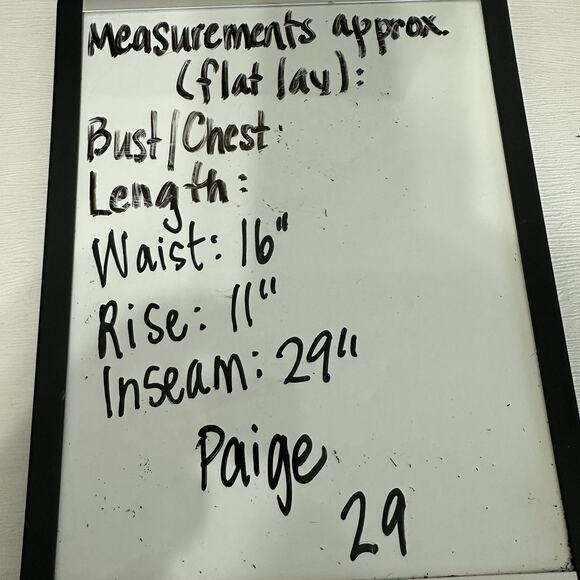 Measurements approx.
(flat lay):
Bust/Chest:
Length:
Waist: 16"
Rise: 11"
Inseam: 29"
Paige
29